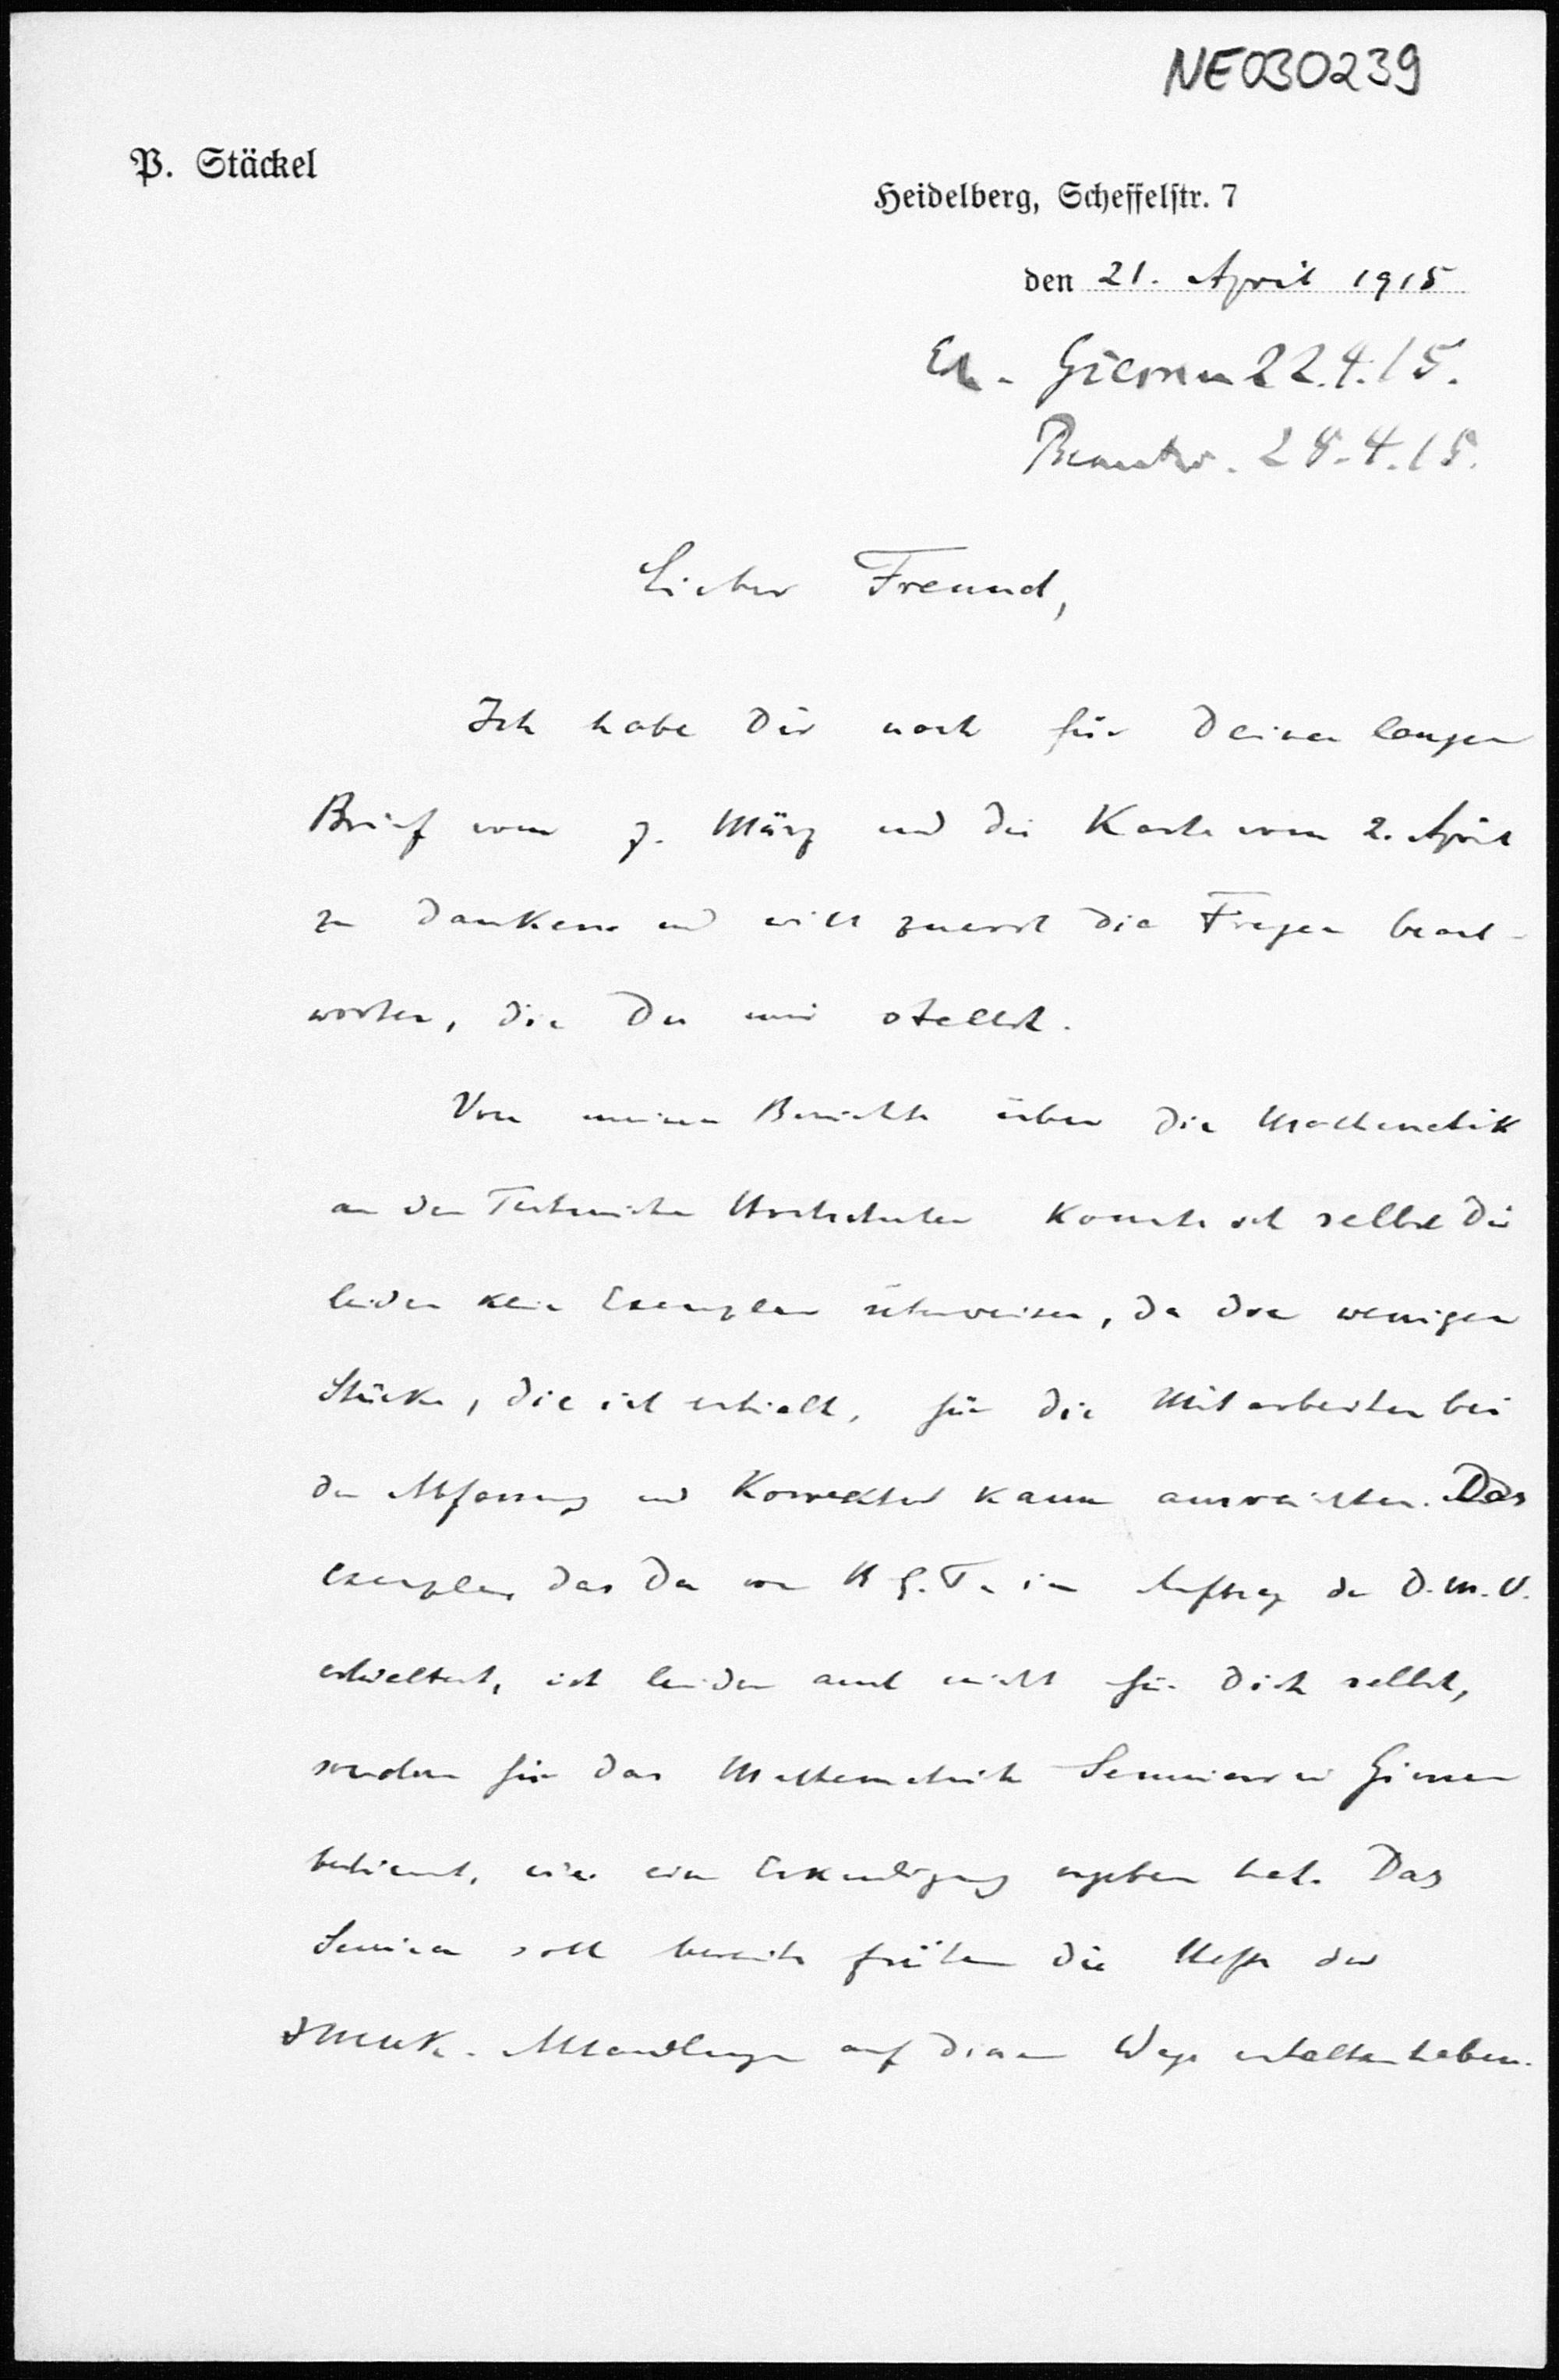 NE030239
P. Stäckel
Heidelberg, Scheffelstr. 7
den 21. April 1915
Giessen 22.4.15.
Beantw. 28.4.15.
Lieber Freund,
Ich habe Dir noch für Deinen langen
Brief vom 7. März und die Karte vom 2. April
zu danken und will zuerst die Fragen beant-
worten, die Du mir stellst.
Von meinem Berichte über die Mathematik
an den Technischen Hochschulen konnte ich selbst Dir
leider kein Exemplar überweisen, da die wenigen
Stücke, die ich erhielt, für die Mitarbeiter bei
der Abfassung und Korrektur kaum ausreichten. Das
Exemplar das Du von B. G. T. im Auftrag der D.M.V.
erhieltest, ist leider auch nicht für Dich selbst,
sondern für das Mathematische Seminar in Giessen
bestimmt, wie eine Erkundigung ergeben hat. Das
Seminar soll bereits früher die Hefte der
IMUK-Abhandlungen auf diesem Wege erhalten haben.